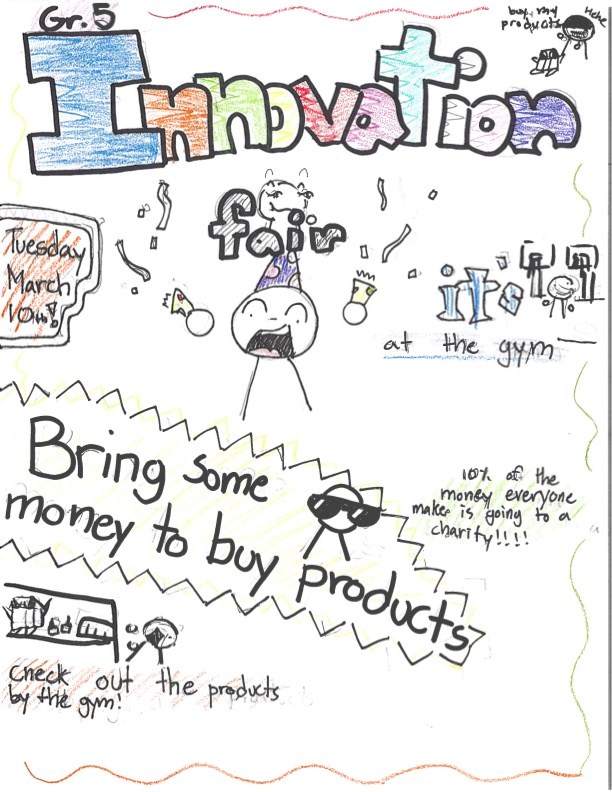 Gr. 5
buy my
products
Hehe
Innovation
fair
Tuesday
March
10th!
it's
at the gym
Bring some
money to buy products
100% of the
money everyone
makes is going to a
charity!!!!
check out the products
by the gym!